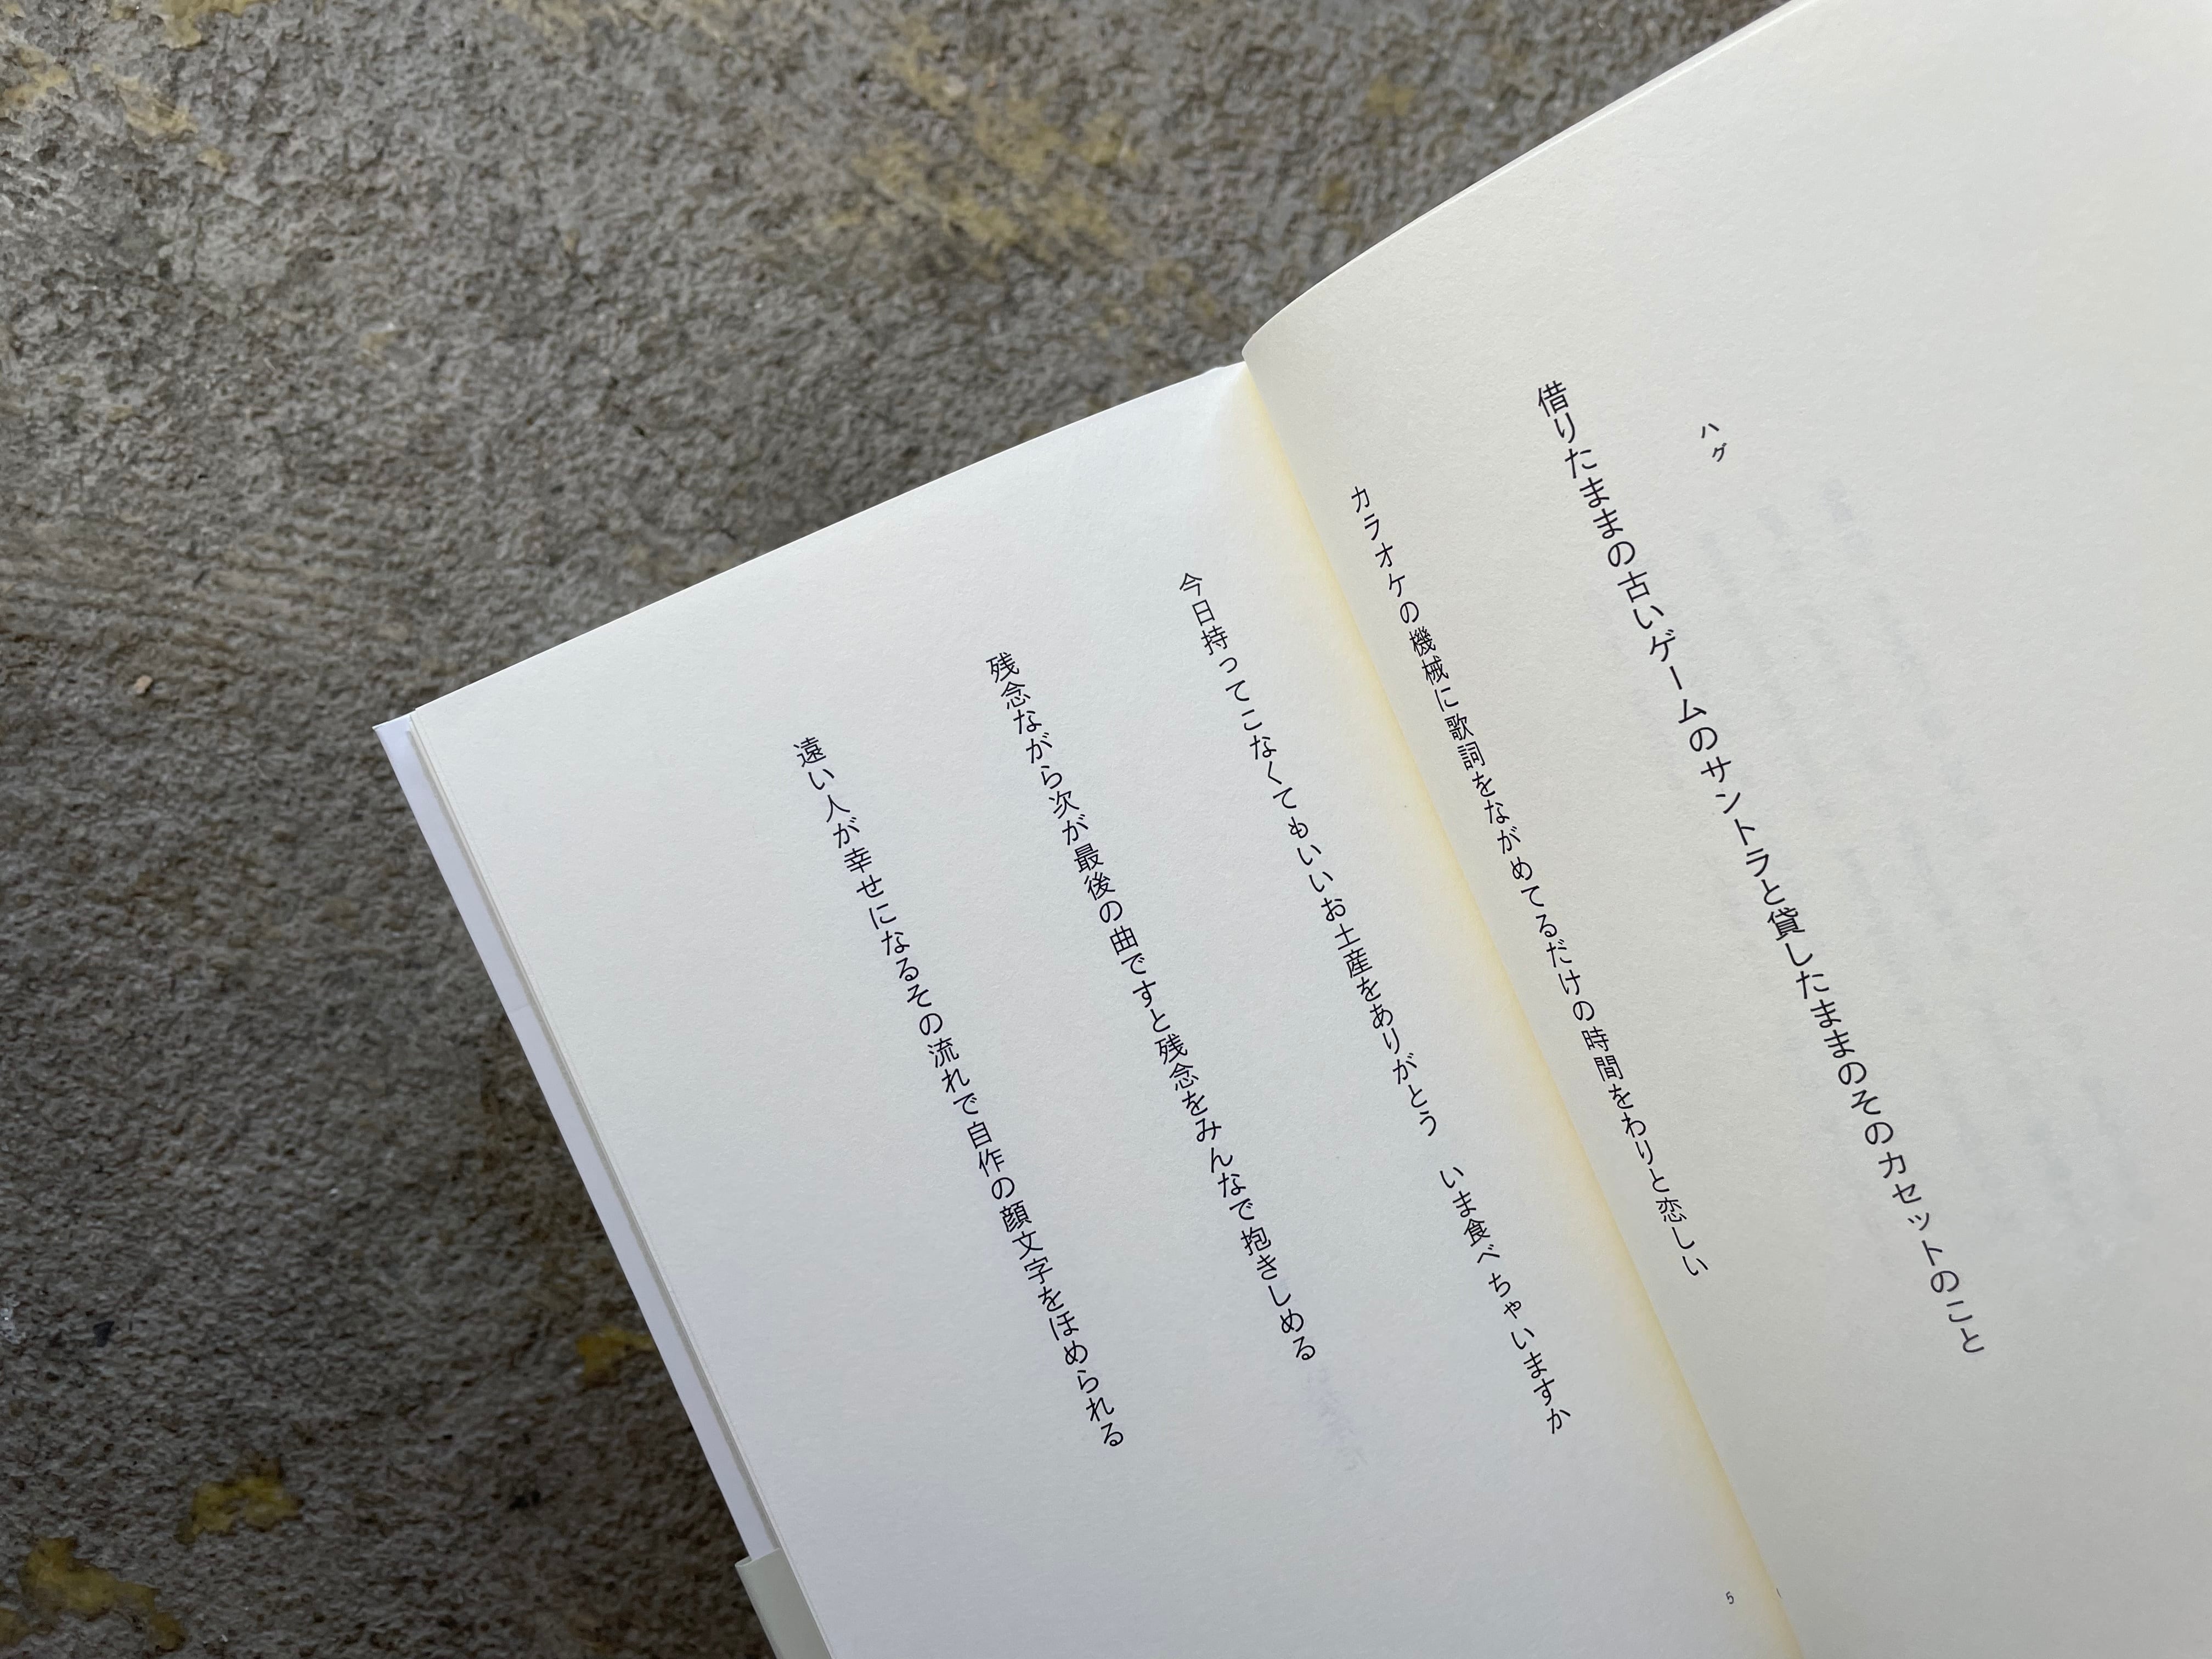 ハグ
借りたままの古いゲームのサントラと貸したままのそのカセットのこと
カラオケの機械に歌詞をながめてるだけの時間をわりと恋しい
今日持ってこなくてもいいお土産をありがとう　いま食べちゃいますか
残念ながら次が最後の曲ですと残念をみんなで抱きしめる
遠い人が幸せになるその流れで自作の顔文字をほめられる
5